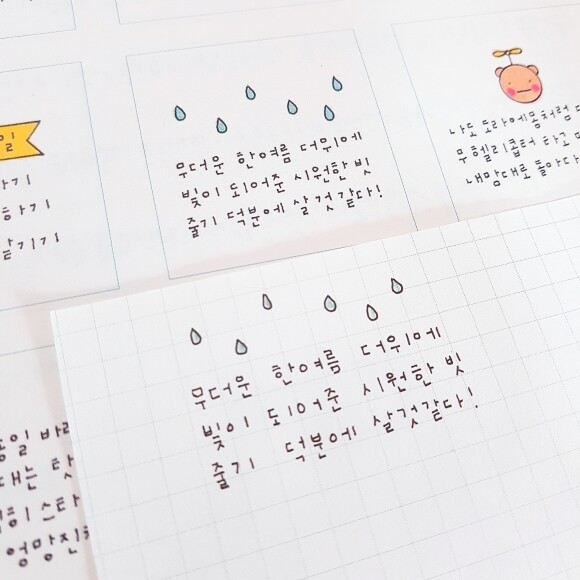 일
무더운 한여름 더위에
빛이 되어준 시원한 빗
줄기 덕분에 살것같다!
나도 도라에몽처럼
무 헬리콥터 타고
내맘대로 돌아다
무더운 한여름 더위에
빛이 되어준 시원한 빗
줄기 덕분에 살것같다!